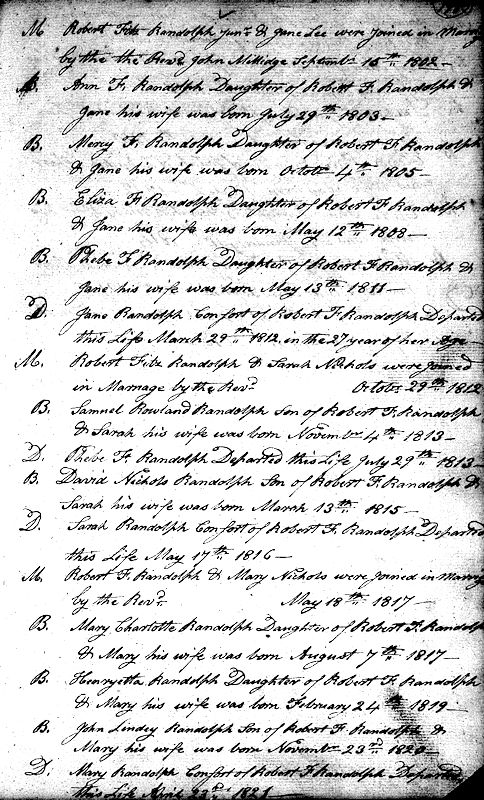 M Robert Fitz Randolph Junr & Jane Lee were Joined in Marriag
by the the Revd John Millidge Septembr 15th 1802 —
B. Ann F. Randolph Daughter of Robert F. Randolph &
Jane his wife was born July 29th 1803 —
B. Mercy F. Randolph Daughter of Robert F. Randolph
& Jane his wife was born Octobr 4th 1805 —
B. Eliza F Randolph Daughter of Robert F Randolph
& Jane his wife was born May 12th 1808 —
B. Phebe F Randolph Daughter of Robert F Randolph &
Jane his wife was born May 13th 1811 —
D. Jane Randolph Consort of Robert F. Randolph Departed
this Life March 29th 1812 in the 27 year of her Age —
M. Robert Fitz Randolph & Sarah Nichols were Joined
in Marriage by the Revd Octobr 29th 1812
B. Samuel Rowland Randolph Son of Robert F. Randolph
& Sarah his wife was born Novembr 4th 1813 —
D. Phebe F. Randolph Departed this Life July 29th 1813 —
B. David Nichols Randolph Son of Robert F. Randolph &
Sarah his wife was born March 13th 1815 —
D. Sarah Randolph Consort of Robert F. Randolph Departed
this Life May 17th 1816 —
M. Robert F. Randolph & Mary Nichols were Joined in Marriag
by the Revd. May 18th 1817 —
B. Mary Charlotte Randolph Daughter of Robert F. Randolph
& Mary his wife was born August 7th 1817 —
B. Henryetta Randolph Daughter of Robert F. Randolph
& Mary his wife was born February 24th 1819 —
B. John Lindey Randolph Son of Robert F. Randolph &
Mary his wife was born Novembr 23rd 1820 —
D. Mary Randolph Consort of Robert F Randolph Departed
this Life 23d 1821